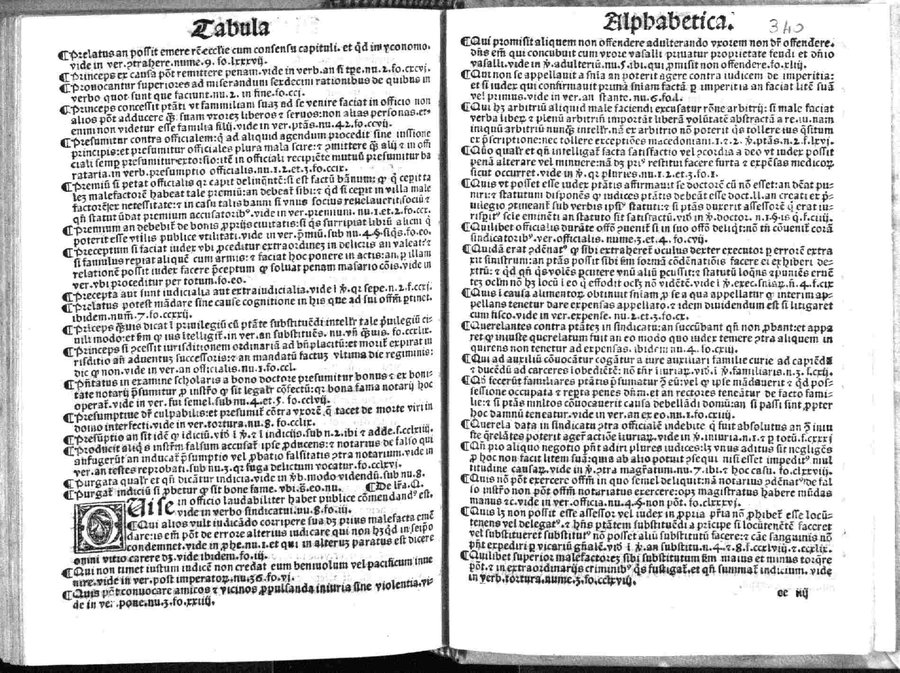 Tabula
¶Prelatus an possit emere rē ecclīe cum consensu capituli. et qd̄ in yconomo.
vide in ver. ptrahere. nume. 9. fo. lxxxvij.
¶Princeps ex causa pōt remittere penam. vide in verb. an si tpe. nu. 2. fo. xcvj.
¶Pronocantur superiores ad miserandum sexdecim rationibus de quibus in
verbo quot sunt que faciunt. nu. 2. in fine. fo. ccj.
¶Princeps concessit ptāti vt familiam suam ad se venire faciat in officio non
alios pōt adducere qz̄ suam vxorem liberos et seruos: non alias personas. et
enim non videtur esse familia filij. vide in ver. ptās. nu. 42. fo. ccvij.
¶Presumitur contra officialem: qd̄ ad aliquid agendum procedit sine iussione
principis: et presumitur officiales plura mala scire: et omittere qz̄ alij: et in offi
ciali semp presumitur extorsio: itē in officiali recipiēte mutuū presumitur ba
rataria. in verb. presumptio officialis. nu. 1. 2. et. 3. fo. ccix.
¶Premiū si petat officialis qr capit delinquētē: si est factū bānum: qr q̄ cepit ta
lez malefactorē habeat tale premiū: an debeat sibi: et qd̄ si cepit in villa male
factorē: et in casu talis banni si vnus socius reuelauerit, sociū et
qn̄ statūt vdat premium accusatorib9. vide in ver. premium. nu. 1. et. 2. fo. ccx.
¶Premium an debebit de bonis pprijs ciuitatis: si qs̄ surripiat libru alicui q̄
poterit esse vtilis publice vtilitati. vide in ver. p̄mū. sub nu. 4. §. si qs̄. fo. eo.
¶Preceptum si faciat iudex vbi pceditur extraordinez in delictis an valeat: et
si famulus repiat aliquē cum armis: et faciat hoc ponere in actis: an p illam
relationē possit iudex facere p̄ceptum qr soluat penam masario cōis. vide in
ver. vbi proceditur per totum. fo. eo.
¶Precepta aut sunt iudicialia aut extraiudicialia. vide ī ꝟ. qr sepe. n. 2. f. ccxj.
¶Prelatus potest mādare sine cause cognitione in his que ad sui offm ptinēt.
ibidem. num. 7. fo. ccxxxij.
¶Priceps quis dicat ī priuilegiū cū ptāte substituēdi intellr̄ tale p̄uilegiū ci
uili modo: et fm q̄ ius itelligit. in ver. an substitues. nu. vn. qz̄uis. fo. ccxlix.
¶Princeps si pcessit iurisditionem ordinariā ad bn̄placitū: et morit expirat in
risditio an̄ aduentuz successoris: et an mandatu factuz vltima die regiminis:
dic q̄ non. vide in ver. an officialis. nu. 1. fo. ccl.
¶Pn̄tatus in examine scholaris a bono doctore presumitur bonus et ex boni
tate notarij p̄sumitur p instrō qr sit legalr̄ cōfectū: qr bona fama notarij hoc
operat̄. vide in ver. fui semel. sub nu. 4. et. 5. fo. cclvij.
¶Presumptiue dr̄ culpabilis: et presumit̄ cōtra vxorē q̄ tacet de morte viri in
domo interfecti. vide in ver. tortura. nu. 8. fo. cclix.
¶Presūptio an sit idē qr idiciū. vis ī ꝟ. ī indicijs. sub n. 2. ibi et adde. f. cclxiij.
¶Producit aliq̄s instrm̄ falsum accusat̄ ipse p̄ducens: et notarius de falso qui
aufugerūt an indicat̄ p̄sumptio vel pbatio falsitatis ctra notarium. vide in
ver. an testes reprobati. sub nu. 3. qr fuga delictum vocatur. fo. cclxvj.
¶Purgata qualr̄ et qn̄ dicātur indicia. vide in ꝟb. modo videndū. sub nu. 8.
¶Purgat̄ indiciū si pbetur qr sit bone fame. vbi. s̄. eo. nu. ¶De lr̄a. Q.
QUise in officio laudabiliter habet publice comendand9 est.
vide in verbo sindicatui. nu. 8. fo. iij.
¶Qui alios vult iudicādo corripere sua dz̄ prius malefacta emē
dare: is em̄ pōt de errore alterius iudicare qui non hz̄ qd̄ in seipo
condemnet. vide in phe. nu. 1. et qui in alteruz paratus est dicere
omni vitio carere dz̄. vide ibidem. fo. iij.
¶Qui non timet iustum iudicē non credat eum beniuolum vel pacificum inue
nire. vide in ver. post imperator. nu. 36. fo. vj.
¶Quis pōt conuocare amicos et vicinos p pulsanda iniuria siue violentia. vi
de in ver. pone. nu. 3. fo. xxiij.
Alphabetica.
340
¶Qui promisit aliquem non offendere adulterando vxorem non dr̄ offendere.
dn̄s em̄ qui concubuit cum vxore vasalli priuatur proprietate feudi et dn̄io
vasalli. vide in ꝟ. adulteriū. nu. 5. ibi. qui pmisit non offendere. fo. xlij.
¶Qui non se appellauit a sn̄ia an poterit agere contra iudicem de imperitia:
et si iudex qui confirmauit primā sn̄iam factā p imperitia an faciat litē suā
vel primus. vide in ver. an stante. nu. 6. fo. l.
¶Qui hz̄ arbitriū aliquid male faciendi excusatur rōne arbitrij: si male faciat
verba libere et plenū arbitriū importāt liberā volūtatē abstractā a re. iu. nam
iniquū arbitriū nunqz̄ intellr̄. nā ex arbitrio nō poterit qs tollere ius qsitum
ex pscriptione: nec tollere exceptiōes macedoniani. 1. et. 2. ꝟ. ptās. n. 2. f. lxvj.
¶Quo qualr̄ et qn̄ intelligat̄ facta satisfactio vel ꝑcordia a deo vt iudex possit
penā alterare vel minuere: nā dz̄ pri9 restitui facere furta et expēsas medicorz
sicut occurret. vide in ꝟ. qr pluries. nu. 1. 2. et. 3. fo. 1.
¶Quis vt posset esse iudex ptātis affirmauit se doctorē cū nō esset: an dēat pu
niri: et statutum disponēs qr iudices ptātis debeāt esse doct. ll. an creati ex p̄
uilegio ptineant sub verbis ipsi9 statuti: et si ptās duxerit assessorē q̄ erat iu
risp̄it9 scie eminēti an statuto sit satisfactū. vis in ꝟ. doctor. n. 1. §. is q̄. f. ciij.
¶Quilibet officialis durāte offō pueniī si in suo offō deliqt: nō tn̄ cōuenit corā
sindicatorib9. ver. officialis. nume. 3. et. 4. fo. cvij.
¶Quidā erat pdēnat9 vt sibi extraheret̄ oculus dexter executor p errorē extra
xit sinistrum: an ptās possit sibi fm formā cōdēnatiōis facere ei exhiberi dex
trū: et qd̄ qn̄ qs volēs pcutere vnū aliū pcussit: et statutū loqns̄ et puniēs eruē
tez oclm̄ nō hz̄ locū ī eo q̄ effodit oclz̄ nō vidētē. vide ī ꝟ. exec. sniaꝝ. n. 4. f. cix
¶Quis ī causa alimentorz obtinuit sniam p se a qua appellatur qr interim ap
pellans tenetur dare expensas appellato: et idem diuidendum est si litigaret
cum fisco. vide in ver. expense. nu. 2. et. 3. fo. cx.
¶Querelantes contra ptātes in sindicatu: an succūbant qn̄ non pbant: et appa
ret qr iniuste querelatum fuit an eo modo quo iudex temere ptra aliquem in
quirens non tenetur ad expensas. ibidem: nu. 4. fo. cxiij.
¶Qui ad auxiliū cōuocāt̄ cogātur a iure auxiliari familie curie ad capiēdā
et ducēdū ad carceres iobediētē: nō tn̄r̄ iuriaꝝ. vis. ī ꝟ. familiaris. n. 3. f. cxij.
¶Qn̄ fecerūt familiares ptātis p̄sumatur ꝫ eū: vel qr ipse mādauerit et qd̄ pos-
sessione occupata et repta penes dn̄m. et an rectores teneātur de facto fami-
lie: et si miltas cōuocauerit causa debellādi domū: an si passi sint ppter
hoc damnū teneatur. vide in ver. an ex eo. nu. 1. fo. cxiij.
¶Querela data in sindicatu ctra officialē indebite qr fuit absolutus an ꝫ iniu
ste q̄relātes poterit ager̄ actiōe iiuriaꝝ. vide in ꝟ. iniuria. n. 1. et p totū. f. cxxxj
¶Qn̄ pro aliquo negotio pn̄t adiri plures iudices: lz̄ vnus aditus sit negligēs
p hoc non facit litem suā: quo minus qr ab alio potuit peti: qr nisi esset impedit9 mul
titudine causarz. vide in ꝟ. ctra magr̄atum. nu. 7. ibi. et hoc casu. fo. clxxviij.
¶Quis nō pōt exercere offm̄ in quo semel deliquit: nā notarius pdēnat9 de fal
so instrō non pōt offm̄ notariatus exercere: opz̄ magistratus habere mūdas
manus et c. vide in ver. officia. nu. 4. §. non pōt. fo. clxxxvj.
¶Quis lz̄ non possit esse assessor vel iudex in ppria pria nō phibet̄ esse locū-
tenens vel delegat9. et hn̄s ptātem substituēdi a pricipe si locūtenētē faceret
vel substitueret substitut9 nō posset aliū substitutū facere: et cāe sanguinis nō
pn̄t expediri p vicariū gn̄alē. vis ī ꝟ. an substitu. n. 4. et. 8. f. ccxlviij. et ccxlix.
¶Quilibet superius malefactores sibi substitutum fm maius et minus torqr̄e
pōt. et in extraordinarijs criminib9 qs fustigat̄. et qn̄ summat̄ indicium. vide
in verb. tortura. nume. 3. fo. cclxviij.
oc iiij